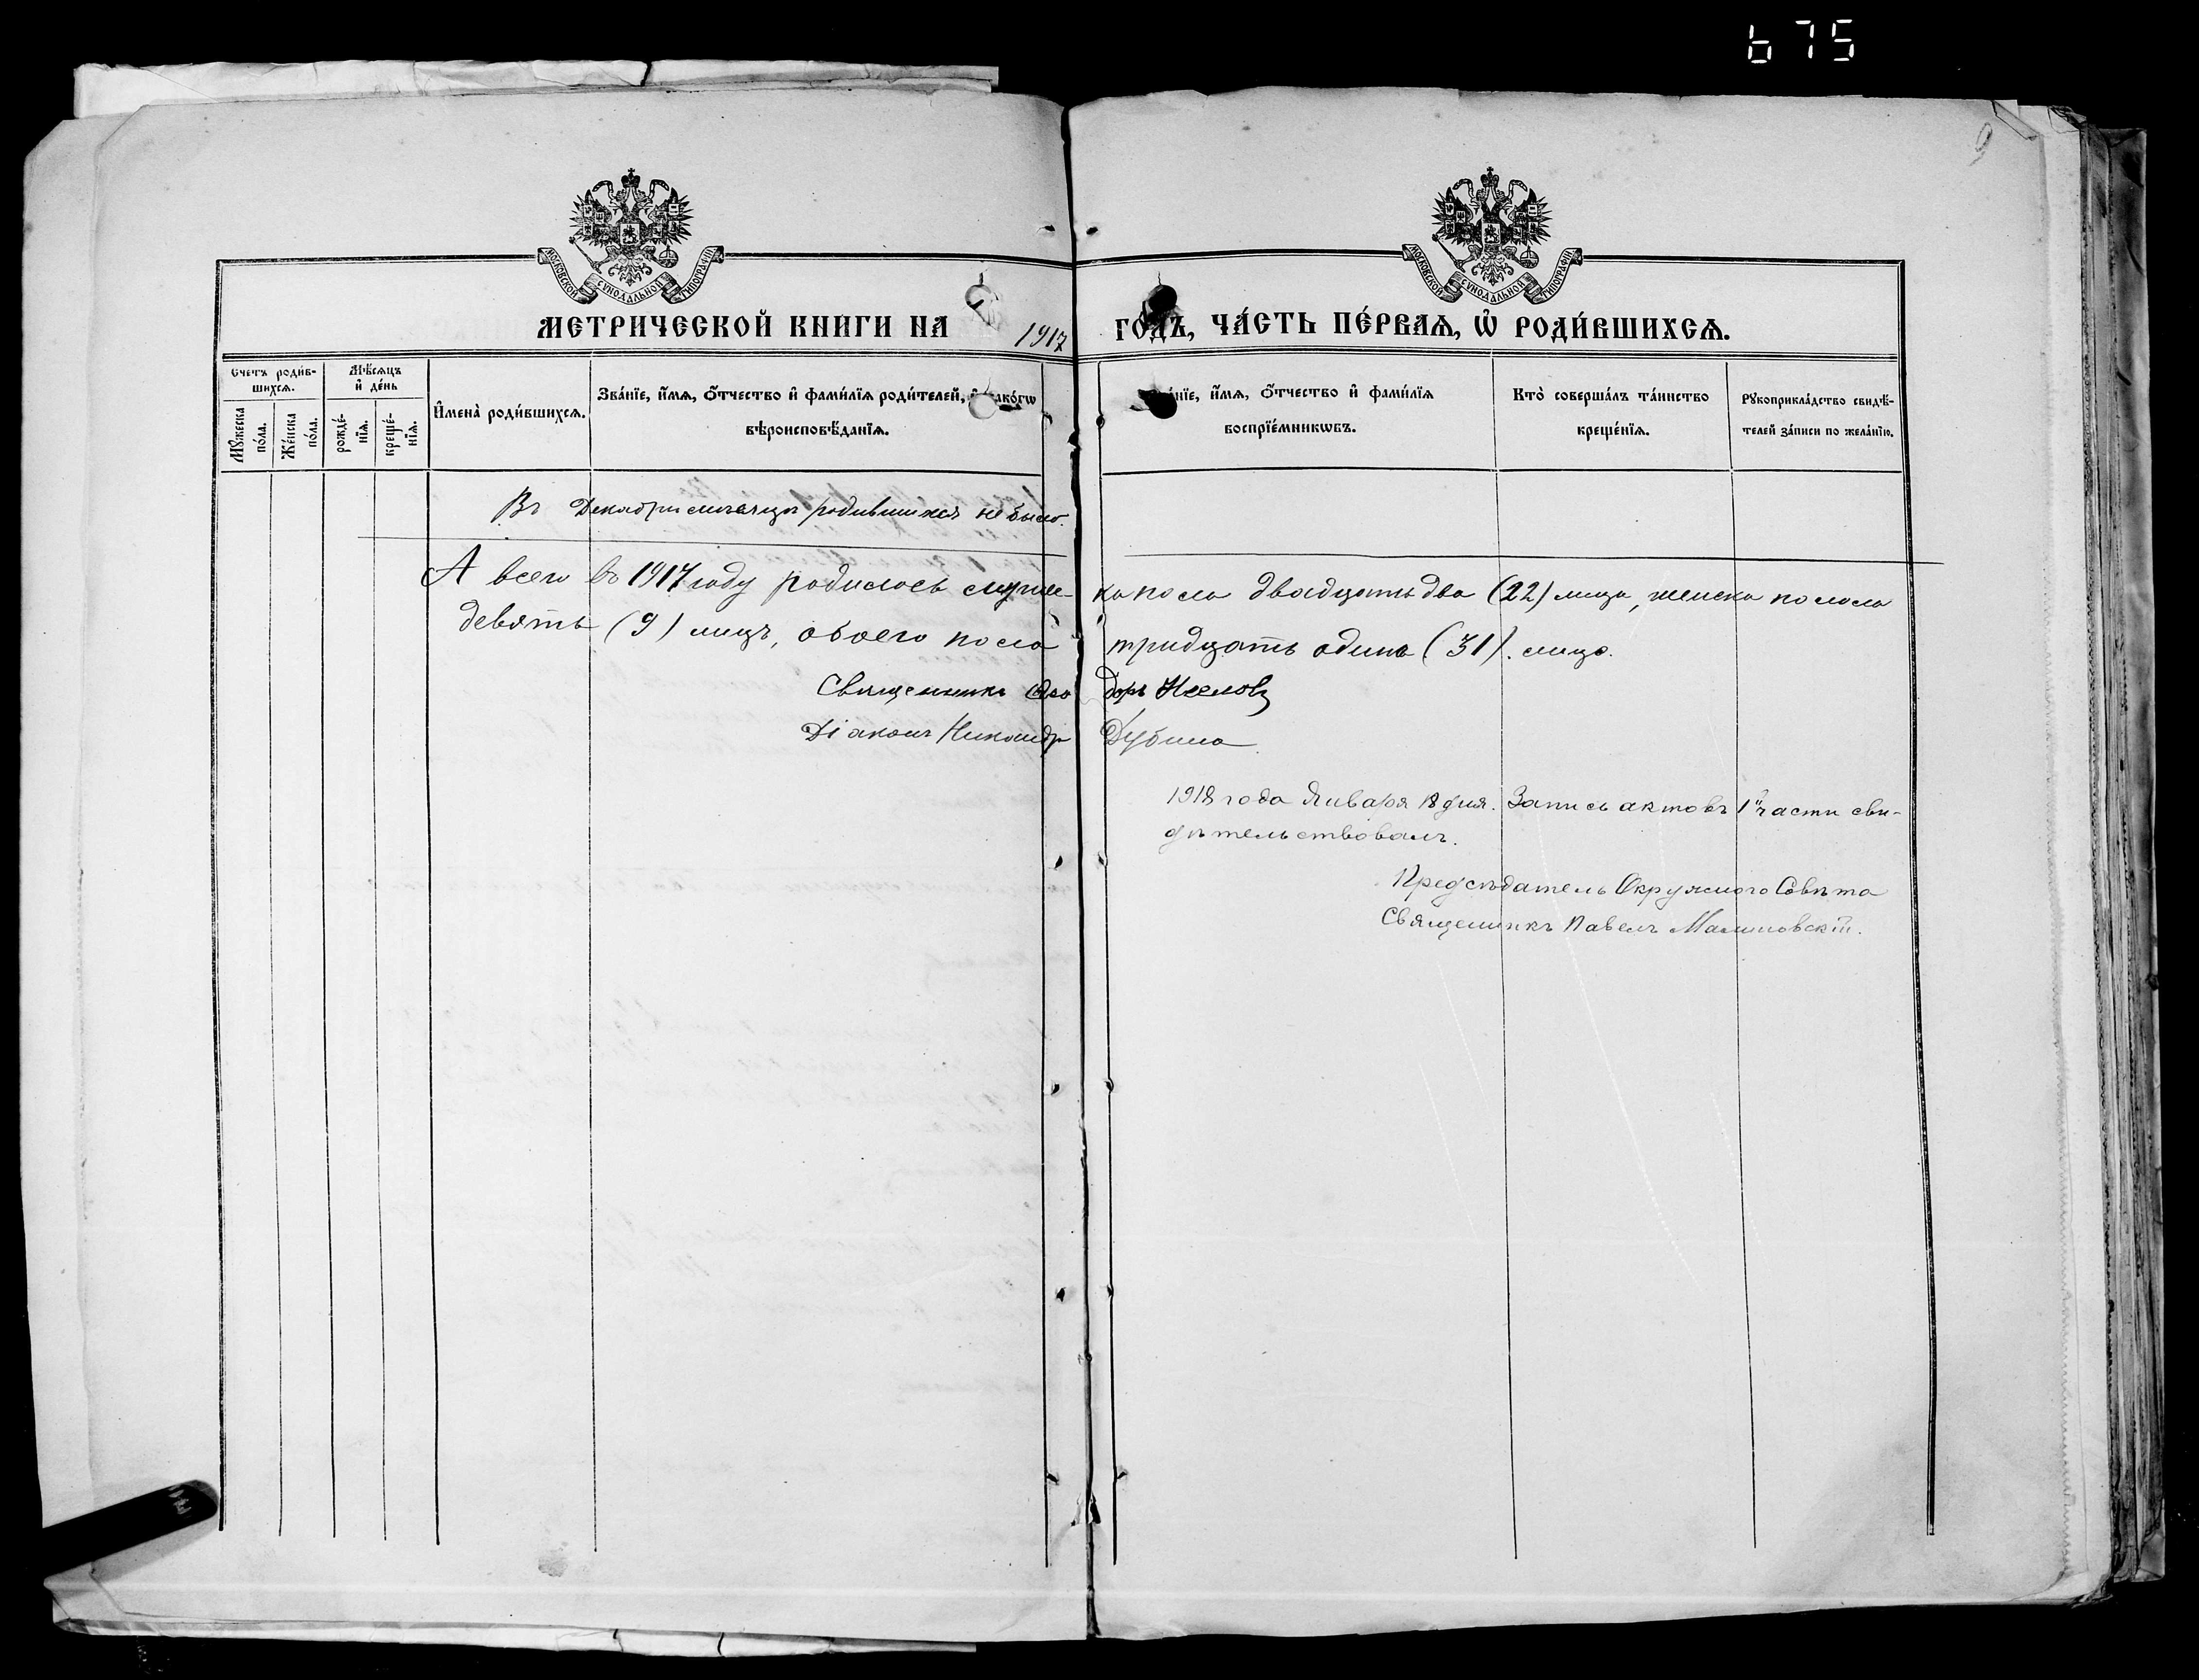 675
9
МОСКОВСКОЙ СѴНОДАЛЬНОЙ ТИПОГРАФІИ
МОСКОВСКОЙ СѴНОДАЛЬНОЙ ТИПОГРАФІИ
МЕТРИЧЕСКОЙ КНИГИ НА 1917 ГОДЪ, ЧА́СТЬ ПЕ́РВАѦ, Ѡ҆ РОДИ́ВШИХСѦ.
Счетъ роди́в-
шихсѧ.
Мꙋжеска
по́ла.
Же́нска
по́ла.
Мѣ́сѧцъ
и҆ де́нь
рожде́-
нїѧ.
креще́-
нїѧ.
И҆мена̀ роди́вшихсѧ.
Зва́нїе, и҆́мѧ, ѻ҆́тчество и҆ фами́лїѧ роди́телей, и҆ како́гѡ
вѣроисповѣ́данїѧ.
Зва́нїе, и҆́мѧ, ѻ҆́тчество и҆ фами́лїѧ
воспрїе́мникѡвъ.
Кто̀ соверша́лъ та́инство
креще́нїѧ.
Рꙋкоприкла́дство свидѣ́-
телей за́писи по жела́нїю.
Въ Декабри мѣсяцѣ родившихся не было.
А всего въ 1917 году родилось мужеска пола двадцать два (22) лица, женска пола
девять (9) лицъ, обоего пола тридцать одинъ (31). лицо.
Священникъ Ѳеодоръ
Діаконъ Никандръ Дубина
1918 года Января 18 дня. Запись актовъ 1й части сви-
дѣтельствовалъ.
Предсѣдатель Окружного Совѣта
Священникъ Павелъ Малиновскій.